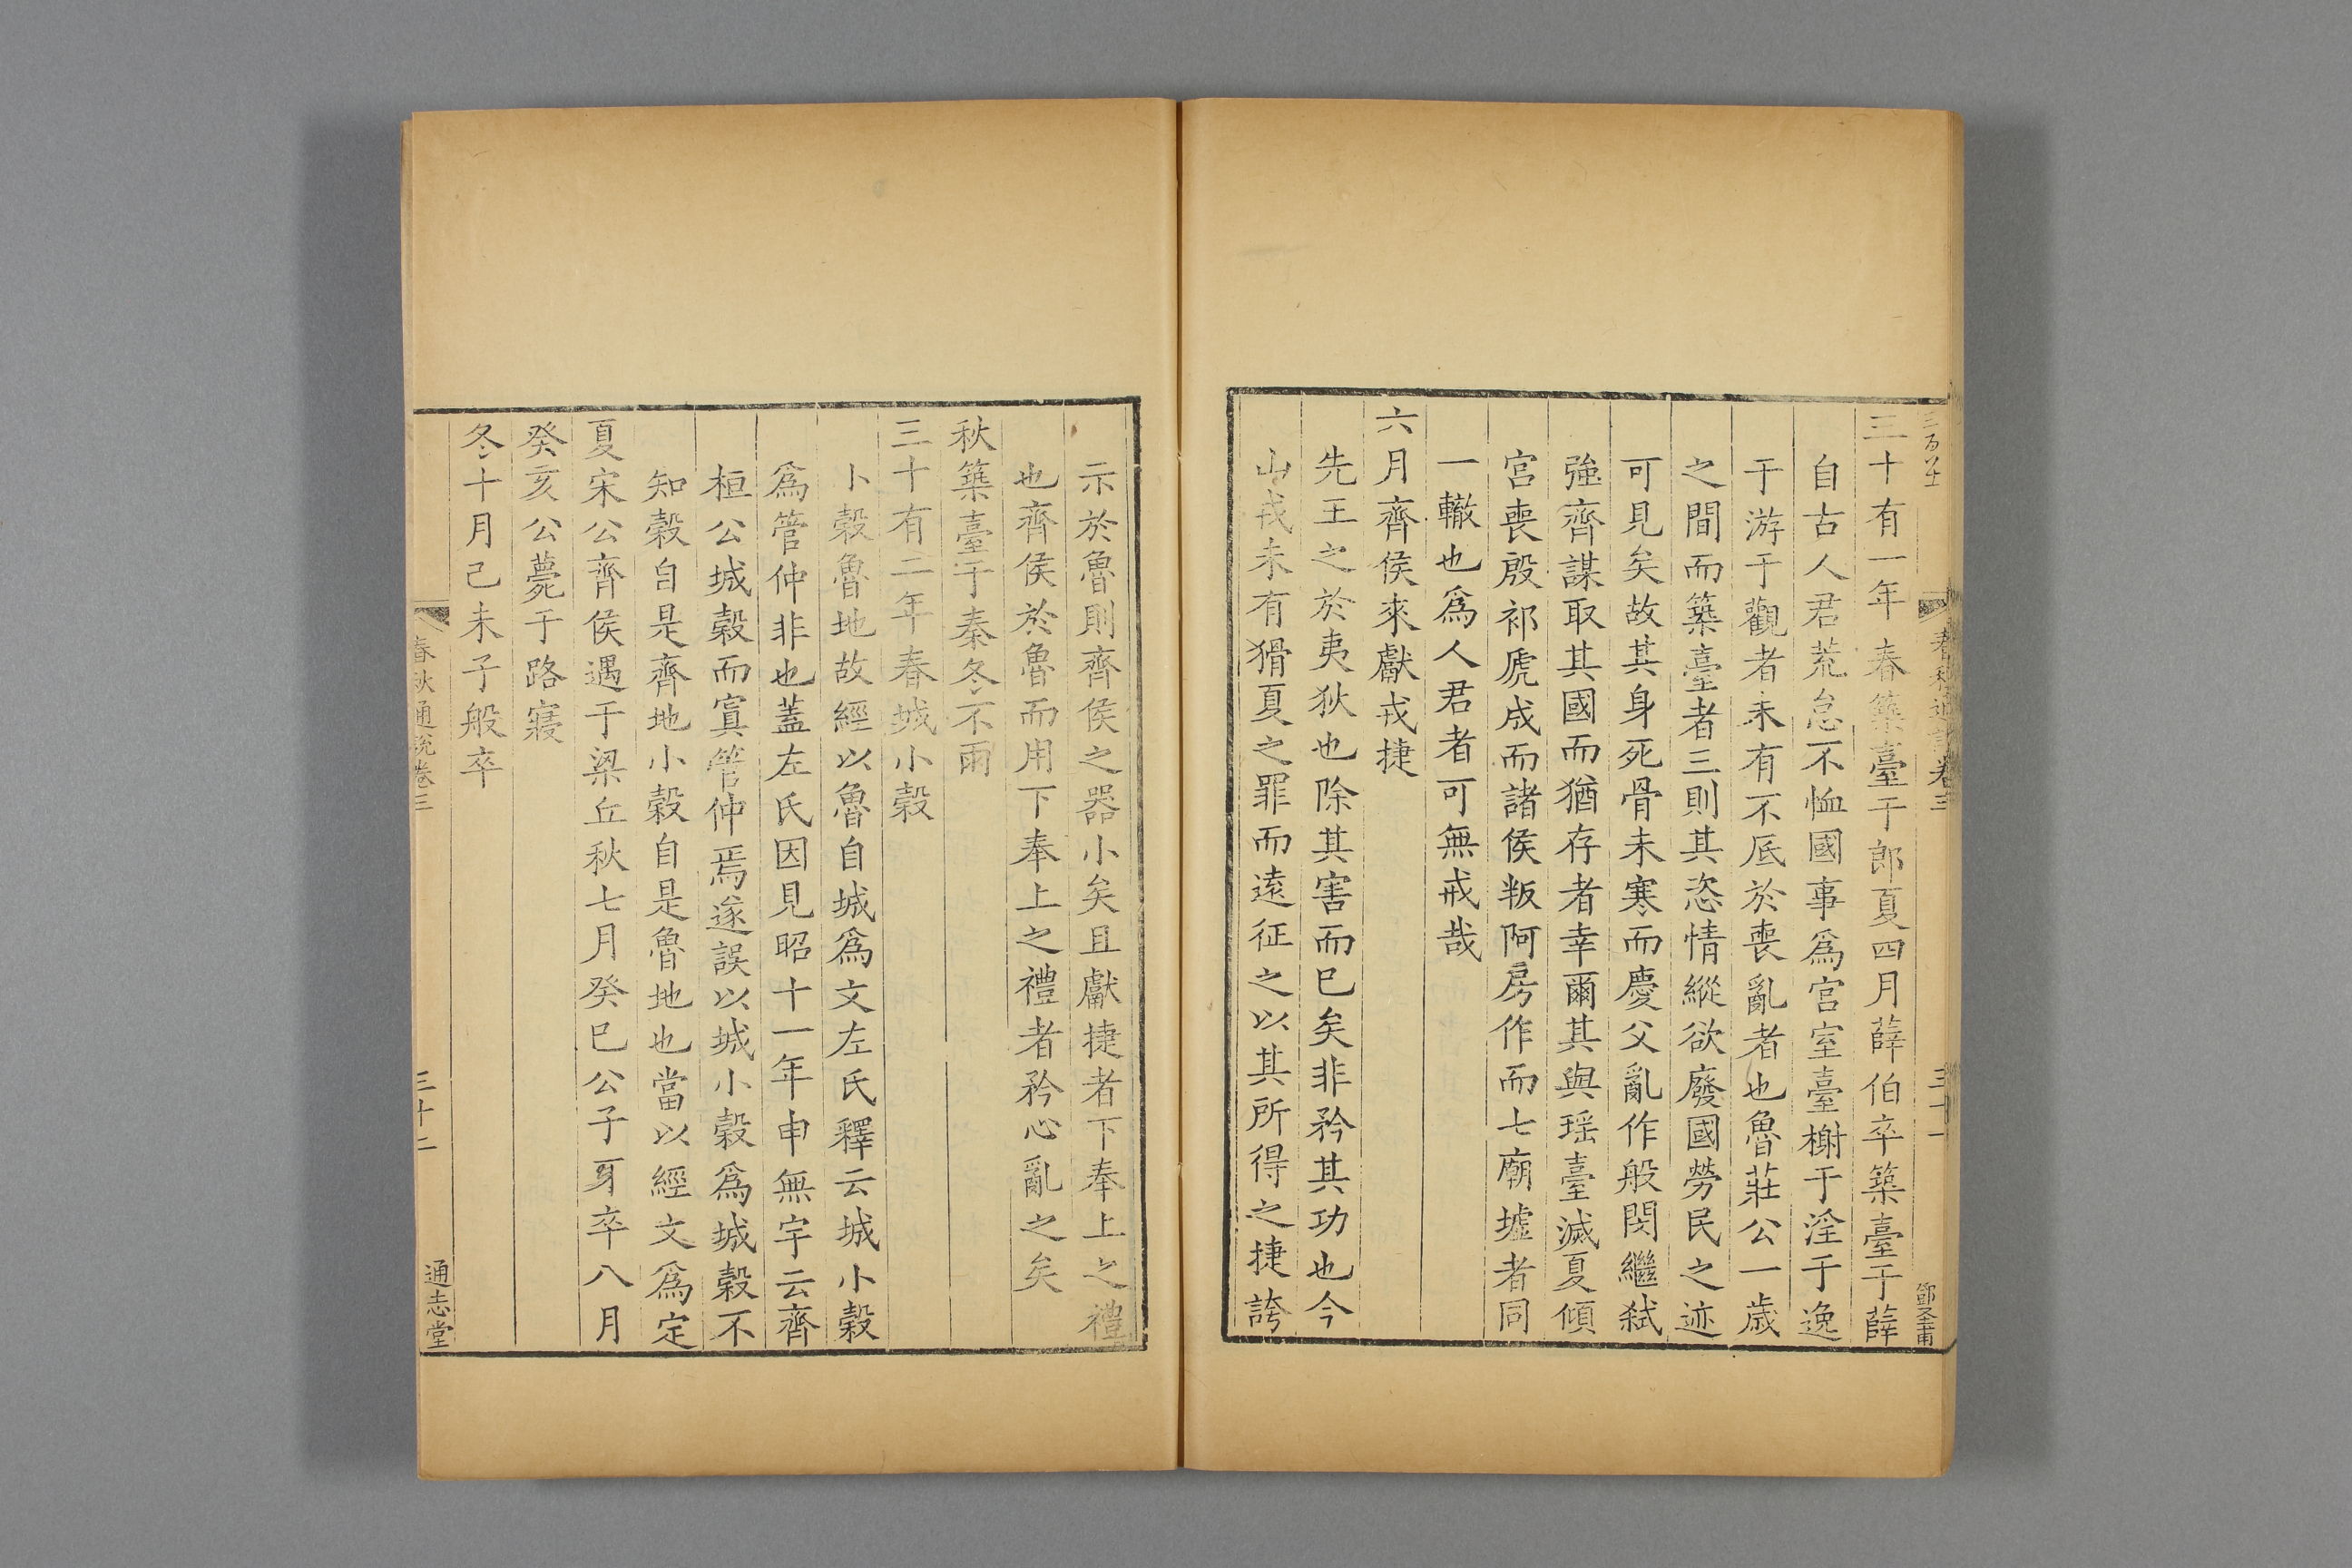 春秋通說卷三
三十一
三十有一年春築臺于郎夏四月薛伯卒築臺于薛
自古人君荒怠不恤國事爲宮室臺榭于淫于逸
于游于觀者未有不底於喪亂者也魯莊公一歲
之間而築臺者三則其恣情縱欲廢國勞民之迹
可見矣故其身死骨未寒而慶父亂作般閔繼弒
強齊謀取其國而猶存者幸爾其與瑤臺滅夏傾
宮喪殷祁虒成而諸侯叛阿房作而七廟墟者同
一轍也爲人君者可無戒哉
六月齊侯來獻戎捷
先王之於夷狄也除其害而巳矣非矜其功也今
山戎未有猾夏之罪而遠征之以其所得之捷誇
示於魯則齊侯之器小矣且獻捷者下奉上之禮
也齊侯於魯而用下奉上之禮者矜心亂之矣
秋築臺于秦冬不雨
三十有二年春城小榖
卜榖魯地故經以魯自城爲文左氏釋云城小榖
爲管仲非也蓋左氏因見昭十一年申無宇云齊
桓公城榖而寘管仲焉遂誤以城小榖爲城榖不
知榖自是齊地小榖自是魯地也當以經文爲定
夏宋公齊侯遇于梁丘秋七月癸巳公子牙卒八月
癸亥公薨于路寢
冬十月己未子般卒
春秋通說卷三
三十二
通志堂